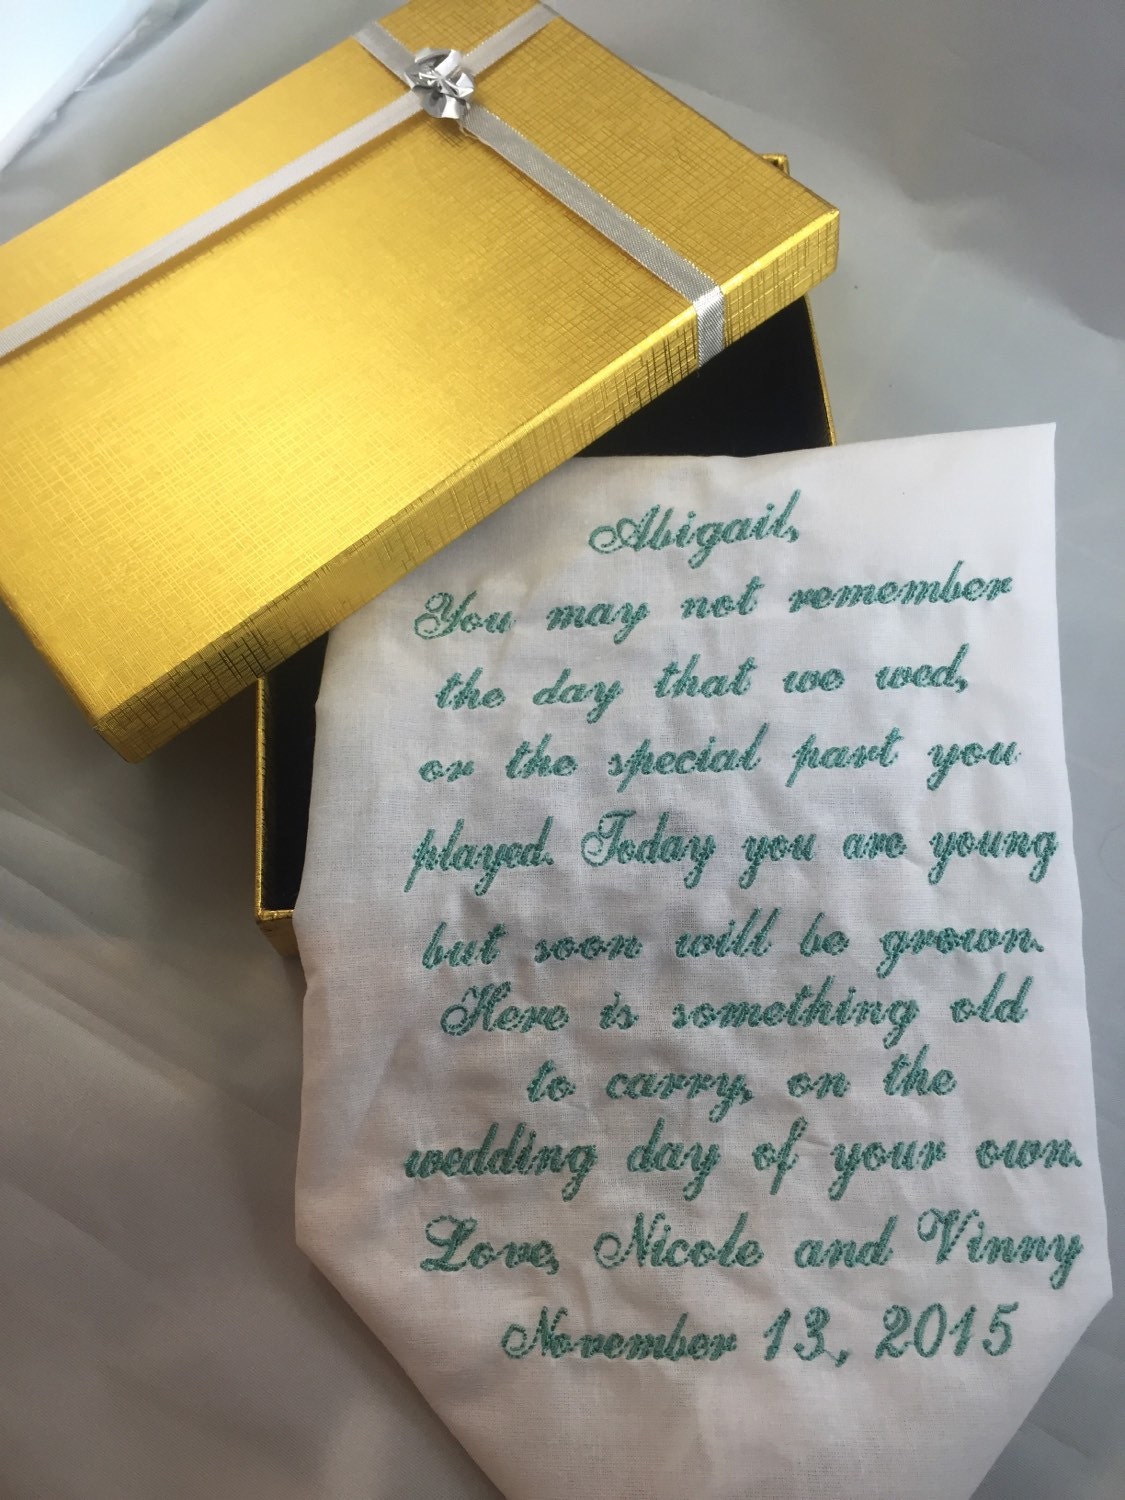 Abigail,
You may not remember
the day that we wed,
or the special part you
played. Today you are young
but soon will be grown.
Here is something old
to carry, on the
wedding day of your own.
Love, Nicole and Vinny
November 13, 2015